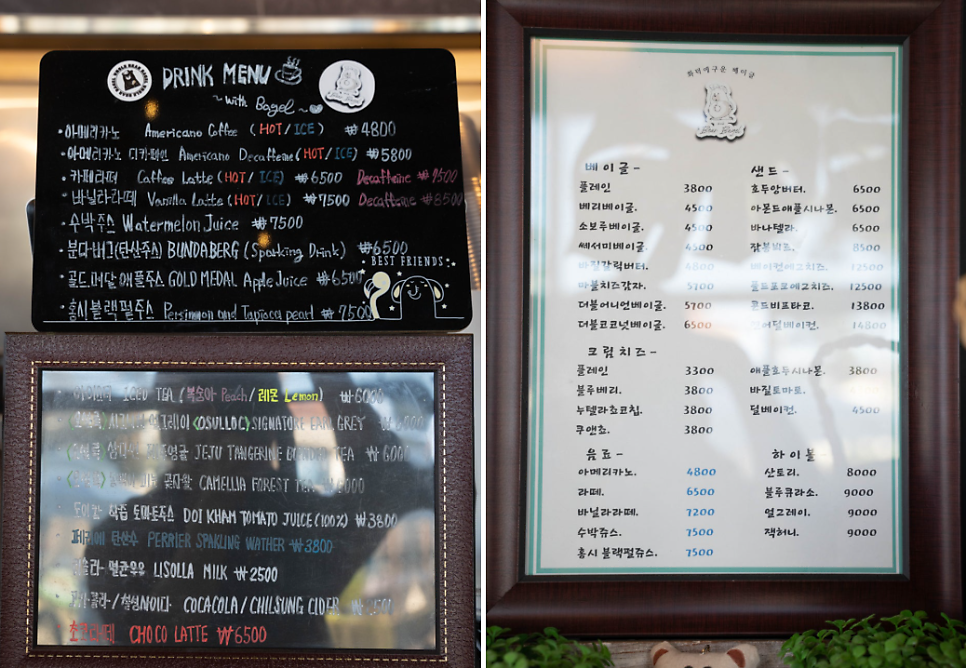 DRINK MENU
~with Bagel~
•아메리카노 Americano Coffee (HOT/ICE) ₩4800
•아메리카노 디카페인 Americano Decaffeine(HOT/ICE) ₩5800
•카페라떼 Caffes Latte(HOT/ICE) ₩6500 Decaffeine ₩7500
•바닐라라떼 Vanilla Latte(HOT/ICE) ₩7500 Decaffeine ₩8500
•수박주스 Watermelon Juice ₩7500
•분다버그(탄산주스) BUNDABERG (Sparking Drink) ₩6500
•골드메달 애플주스 GOLD MEDAL Apple Juice ₩6500
•홍시블랙펄주스 Persimmon and Tapioca pearl ₩7500
BEST FRIENDS
ICED TEA (복숭아 Peach/레몬 Lemon) ₩6000
(OSULLOC) SIGNATURE EARL GREY
JEJU TANGERINE TEA ₩6000
CAMELLIA FOREST TEA
도이캄 착즙 토마토주스 DOI KHAM TOMATO JUICE (100%) ₩3800
페리에 탄산수 PERRIER SPAKLING WATHER ₩3800
멸균우유 LISOLLA MILK ₩2500
코카콜라/칠성사이다 COCACOLA / CHILSUNG CIDER
초코라떼 CHOCO LATTE ₩6500
화덕에구운 베이글
베이글-
플레인 3800
베리베이글. 4500
소보루베이글. 4500
쎄서미베이글. 4500
바질갈릭버터. 4800
마블치즈감자. 5700
더블어니언베이글. 5700
더블코코넛베이글. 6500
크림치즈-
플레인 3300
블루베리. 3800
누텔라쵸코칩. 3800
쿠앤쵸. 3800
음료-
아메리카노. 4800
라떼. 6500
바닐라라떼. 7200
수박쥬스. 7500
홍시 블랙펄쥬스. 7500
샌드-
호두앙버터. 6500
아몬드애플시나몬. 6500
바나텔라. 6500
잠봉뵈르. 8500
베이컨에그치즈. 12500
풀드포크에그치즈. 12500
콜드비프타코. 13800
베이컨. 14800
애플호두시나몬. 3800
바질토마토.
딜베이컨. 4500
하이볼-
산토리. 8000
블루큐라소. 9000
얼그레이. 9000
잭허니. 9000